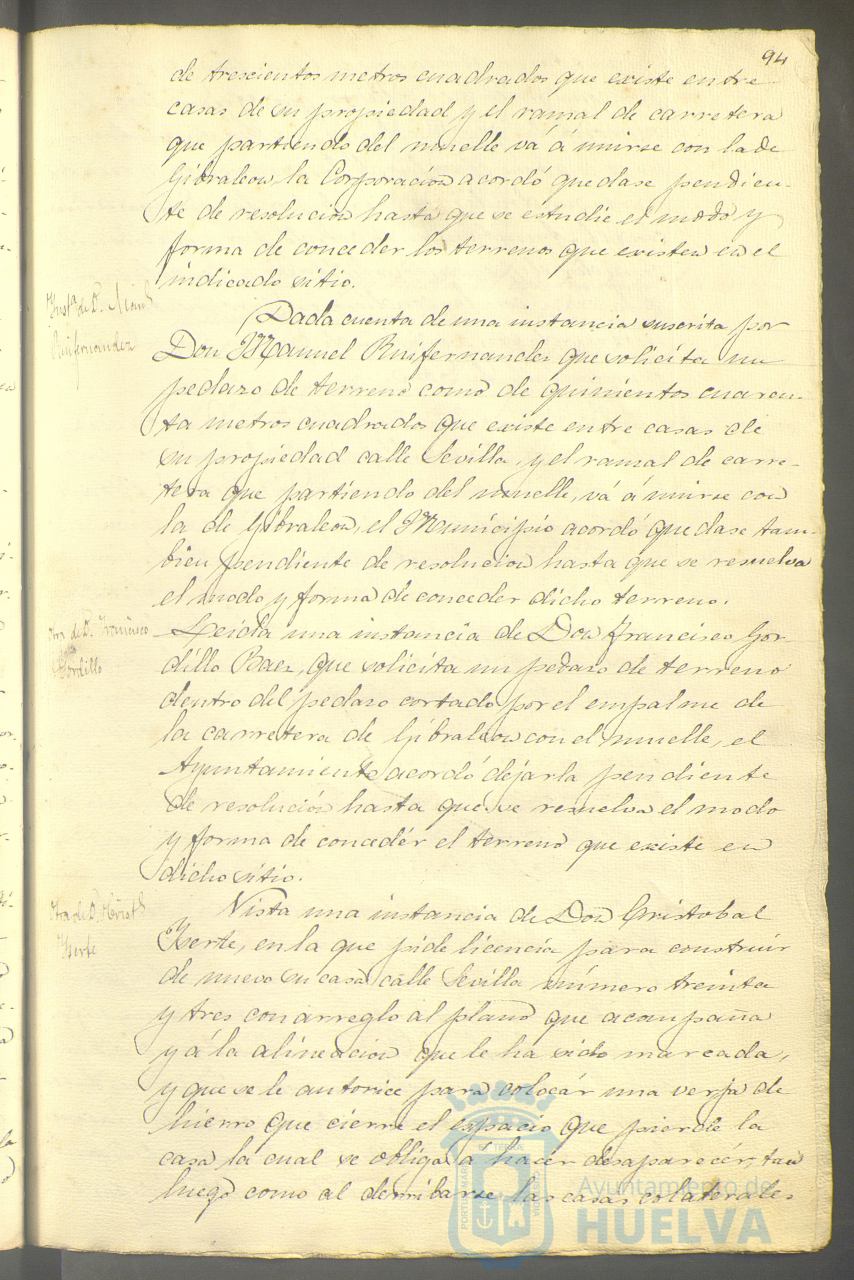 94
de trescientos metros cuadrados que existe entre
casas de su propiedad y el ramal de carretera
que partiendo del muelle vá á unirse con la de
Gibraleon, la Corporacion acordó quedase pendien-
te de resolucion hasta que se estudie el modo y
forma de conceder los terrenos que existen en el
indicado sitio.
Insta de D. Man.l
Ruifernandez
Dada cuenta de una instancia suscrita por
Don Manuel Ruifernandez que solicita un
pedazo de terreno como de quinientos cuaren-
ta metros cuadrados que existe entre casas de
su propiedad calle Sevilla, y el ramal de carre-
tera que partiendo del muelle, vá á unirse con
la de Gibraleon, el Municipio acordó quedase tam-
bien pendiente de resolucion hasta que se resuelva
el modo y forma de conceder dicho terreno.
Otra de D. Francisco
Gordillo
Leida una instancia de Don Francisco Gor-
dillo Baez, que solicita un pedazo de terreno
dentro del pedazo cortado por el empalme de
la carretera de Gibraleon con el muelle, el
Ayuntamiento acordó dejarla pendiente
de resolución hasta que se resuelva el modo
y forma de concedér el terreno que existe en
dicho sitio.
Otra de D. Crist.l
Yerte
Vista una instancia de Don Cristobal
Yerte, en la que pide licencia para construir
de nuevo su casa calle Sevilla número treinta
y tres con arreglo al plano que acompaña
y á la alineacion que le ha sido marcada,
y que se le autorice para colocár una verja de
hierro que cierre el espacio que pierde la
casa la cual se obliga á hacer desaparecér, tan
luego como al derribarse las casas colaterales
PORTUS MARIS
Ayuntamiento de
HUELVA